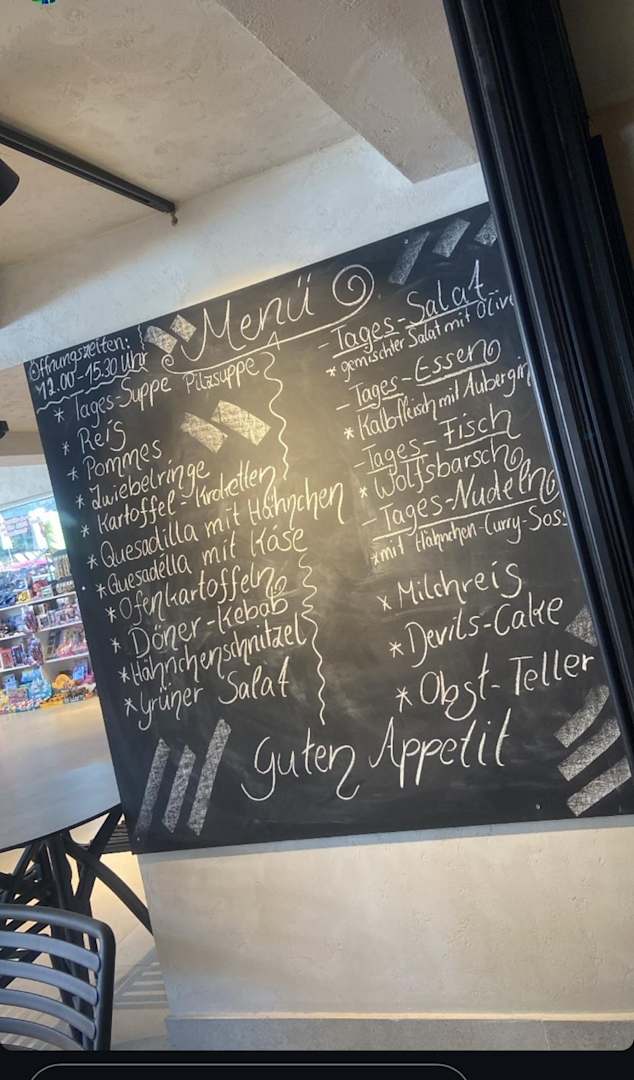 Menü
Öffnungszeiten:
12.00-15.30 Uhr
* Tages-Suppe Pilzsuppe
* Reis
* Pommes
* Zwiebelringe
* Kartoffel-Kroketten
* Quesadilla mit Hähnchen
* Quesadélla mit Käse
* Ofenkartoffeln
* Döner-Kebab
* Hähnchenschnitzel
* grüner Salat
- Tages-Salat
* gemischter Salat mit
- Tages-Essen
* Kalbfleisch mit
- Tages-Fisch
* Wolfsbarsch
- Tages-Nudeln
* mit Hähnchen-Curry-
* Milchreis
* Devils-Cake
* Obst-Teller
Guten Appetit